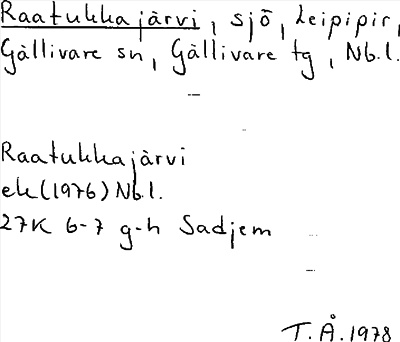 Raatukkajärvi, sjö, Leipipir,
Gällivare sn, Gällivare tg, Nb.l.
Raatukkajärvi
ek(1976) Nb.l.
27K 6-7 g-h Sadjem
T.Å.1978